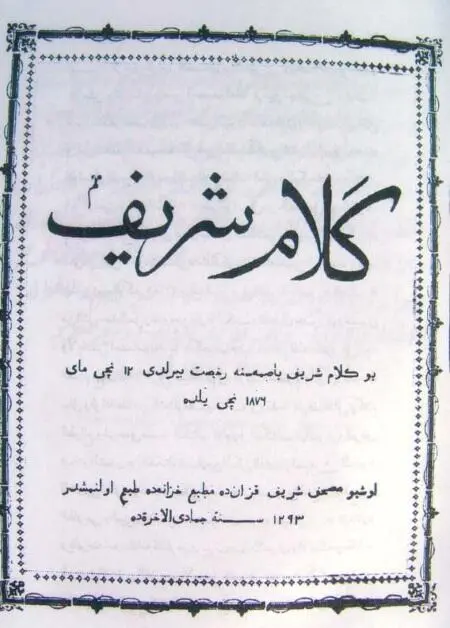 كلام شريف
بو كلام شريف باصمه‌سنه رخصت بيرلدى ١٢ نچى ماى
١٨٧٦ نچى يلده
اوشبو مصحف شريف قزان‌ده مطبع خزانه‌ده طبع اولنمشدر
١٢٩٣ سنة جمادى الاخرةده